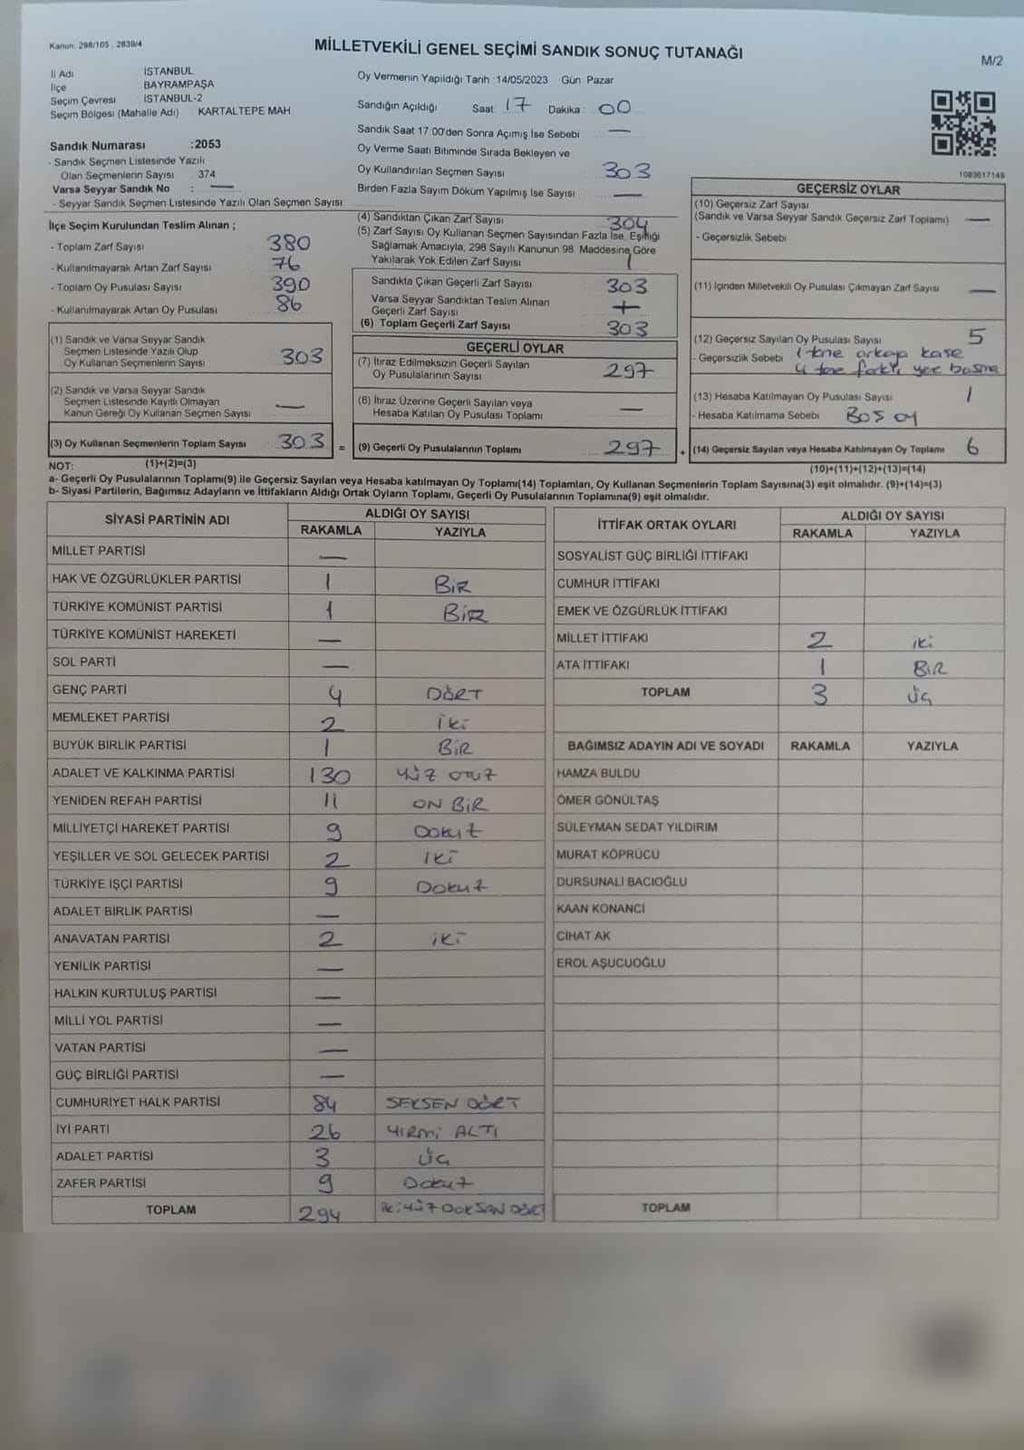 Kanun: 298/105 , 2839/4
MİLLETVEKİLİ GENEL SEÇİMİ SANDIK SONUÇ TUTANAĞI
M/2
İl Adı İSTANBUL
İlçe BAYRAMPAŞA
Seçim Çevresi İSTANBUL-2
Seçim Bölgesi (Mahalle Adı) KARTALTEPE MAH
Sandık Numarası :2053
- Sandık Seçmen Listesinde Yazılı
Olan Seçmenlerin Sayısı 374
Varsa Seyyar Sandık No : —
- Seyyar Sandık Seçmen Listesinde Yazılı Olan Seçmen Sayısı
Oy Vermenin Yapıldığı Tarih :14/05/2023 Gün: Pazar
Sandığın Açıldığı Saat: 17 Dakika: 00
Sandık Saat 17:00'den Sonra Açılmış İse Sebebi —
Oy Verme Saati Bitiminde Sırada Bekleyen ve
Oy Kullandırılan Seçmen Sayısı 303
Birden Fazla Sayım Döküm Yapılmış İse Sayısı —
1083617148
İlçe Seçim Kurulundan Teslim Alınan ;
- Toplam Zarf Sayısı 380
- Kullanılmayarak Artan Zarf Sayısı 76
- Toplam Oy Pusulası Sayısı 390
- Kullanılmayarak Artan Oy Pusulası 86
(1) Sandık ve Varsa Seyyar Sandık
Seçmen Listesinde Yazılı Olup
Oy Kullanan Seçmenlerin Sayısı 303
(2) Sandık ve Varsa Seyyar Sandık
Seçmen Listesinde Kayıtlı Olmayan
Kanun Gereği Oy Kullanan Seçmen Sayısı —
(3) Oy Kullanan Seçmenlerin Toplam Sayısı 303 =
(4) Sandıktan Çıkan Zarf Sayısı 304
(5) Zarf Sayısı Oy Kullanan Seçmen Sayısından Fazla İse, Eşitliği
Sağlamak Amacıyla, 298 Sayılı Kanunun 98. Maddesine Göre
Yakılarak Yok Edilen Zarf Sayısı 1
Sandıkta Çıkan Geçerli Zarf Sayısı 303
Varsa Seyyar Sandıktan Teslim Alınan
Geçerli Zarf Sayısı +
(6) Toplam Geçerli Zarf Sayısı 303
GEÇERLİ OYLAR
(7) İtiraz Edilmeksizin Geçerli Sayılan
Oy Pusulalarının Sayısı 297
(8) İtiraz Üzerine Geçerli Sayılan veya
Hesaba Katılan Oy Pusulası Toplamı —
(9) Geçerli Oy Pusulalarının Toplamı 297 +
GEÇERSİZ OYLAR
(10) Geçersiz Zarf Sayısı
(Sandık ve Varsa Seyyar Sandık Geçersiz Zarf Toplamı) —
- Geçersizlik Sebebi
(11) İçinden Milletvekili Oy Pusulası Çıkmayan Zarf Sayısı —
(12) Geçersiz Sayılan Oy Pusulası Sayısı 5
- Geçersizlik Sebebi 1 tne arkaya kaşe
4 tne farklı yer basma
(13) Hesaba Katılmayan Oy Pusulası Sayısı 1
- Hesaba Katılmama Sebebi BOŞ OY
(14) Geçersiz Sayılan veya Hesaba Katılmayan Oy Toplamı 6
NOT: (1)+(2)=(3)
(10)+(11)+(12)+(13)=(14)
a- Geçerli Oy Pusulalarının Toplamı(9) ile Geçersiz Sayılan veya Hesaba katılmayan Oy Toplamı(14) Toplamları, Oy Kullanan Seçmenlerin Toplam Sayısına(3) eşit olmalıdır. (9)+(14)=(3)
b- Siyasi Partilerin, Bağımsız Adayların ve İttifakların Aldığı Ortak Oyların Toplamı, Geçerli Oy Pusulalarının Toplamına(9) eşit olmalıdır.
SİYASİ PARTİNİN ADI ALDIĞI OY SAYISI
RAKAMLA YAZIYLA
MİLLET PARTİSİ —
HAK VE ÖZGÜRLÜKLER PARTİSİ 1 BİR
TÜRKİYE KOMÜNİST PARTİSİ 1 BİR
TÜRKİYE KOMÜNİST HAREKETİ —
SOL PARTİ —
GENÇ PARTİ 4 DÖRT
MEMLEKET PARTİSİ 2 iki
BÜYÜK BİRLİK PARTİSİ 1 BİR
ADALET VE KALKINMA PARTİSİ 130 YÜZ OTUZ
YENİDEN REFAH PARTİSİ 11 ON BİR
MİLLİYETÇİ HAREKET PARTİSİ 9 Dokuz
YEŞİLLER VE SOL GELECEK PARTİSİ 2 İki
TÜRKİYE İŞÇİ PARTİSİ 9 Dokuz
ADALET BİRLİK PARTİSİ —
ANAVATAN PARTİSİ 2 iki
YENİLİK PARTİSİ —
HALKIN KURTULUŞ PARTİSİ —
MİLLİ YOL PARTİSİ —
VATAN PARTİSİ —
GÜÇ BİRLİĞİ PARTİSİ —
CUMHURİYET HALK PARTİSİ 84 SEKSEN DÖRT
İYİ PARTİ 26 YİRMİ ALTI
ADALET PARTİSİ 3 ÜÇ
ZAFER PARTİSİ 9 Dokuz
TOPLAM 294 iki YÜZ DOKSAN DÖRT
İTTİFAK ORTAK OYLARI ALDIĞI OY SAYISI
RAKAMLA YAZIYLA
SOSYALİST GÜÇ BİRLİĞİ İTTİFAKI
CUMHUR İTTİFAKI
EMEK VE ÖZGÜRLÜK İTTİFAKI
MİLLET İTTİFAKI 2 iki
ATA İTTİFAKI 1 BİR
TOPLAM 3 üç
BAĞIMSIZ ADAYIN ADI VE SOYADI RAKAMLA YAZIYLA
HAMZA BULDU
ÖMER GÖNÜLTAŞ
SÜLEYMAN SEDAT YILDIRIM
MURAT KÖPRÜCÜ
DURSUNALİ BACIOĞLU
KAAN KONANCI
CİHAT AK
EROL AŞUCUOĞLU
TOPLAM